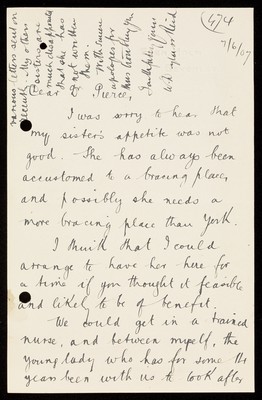 474
7/6/07
Dear Dr Pierce,
I was sorry to hear that
my sister's appetite was not
good. She has always been
accustomed to a bracing place,
and possibly she needs a
more bracing place than York.
I think that I could
arrange to have her here for
a time if you thought it feasible
and likely to be of benefit.
We could get in a trained
nurse, and between myself, the
young lady who has for some
years been with us to look after
various letters sent on
recently. My other
sisters are
much disappointed
that she has
not written
them.
With much
apologies for
thus troubling you
Faithfully yours